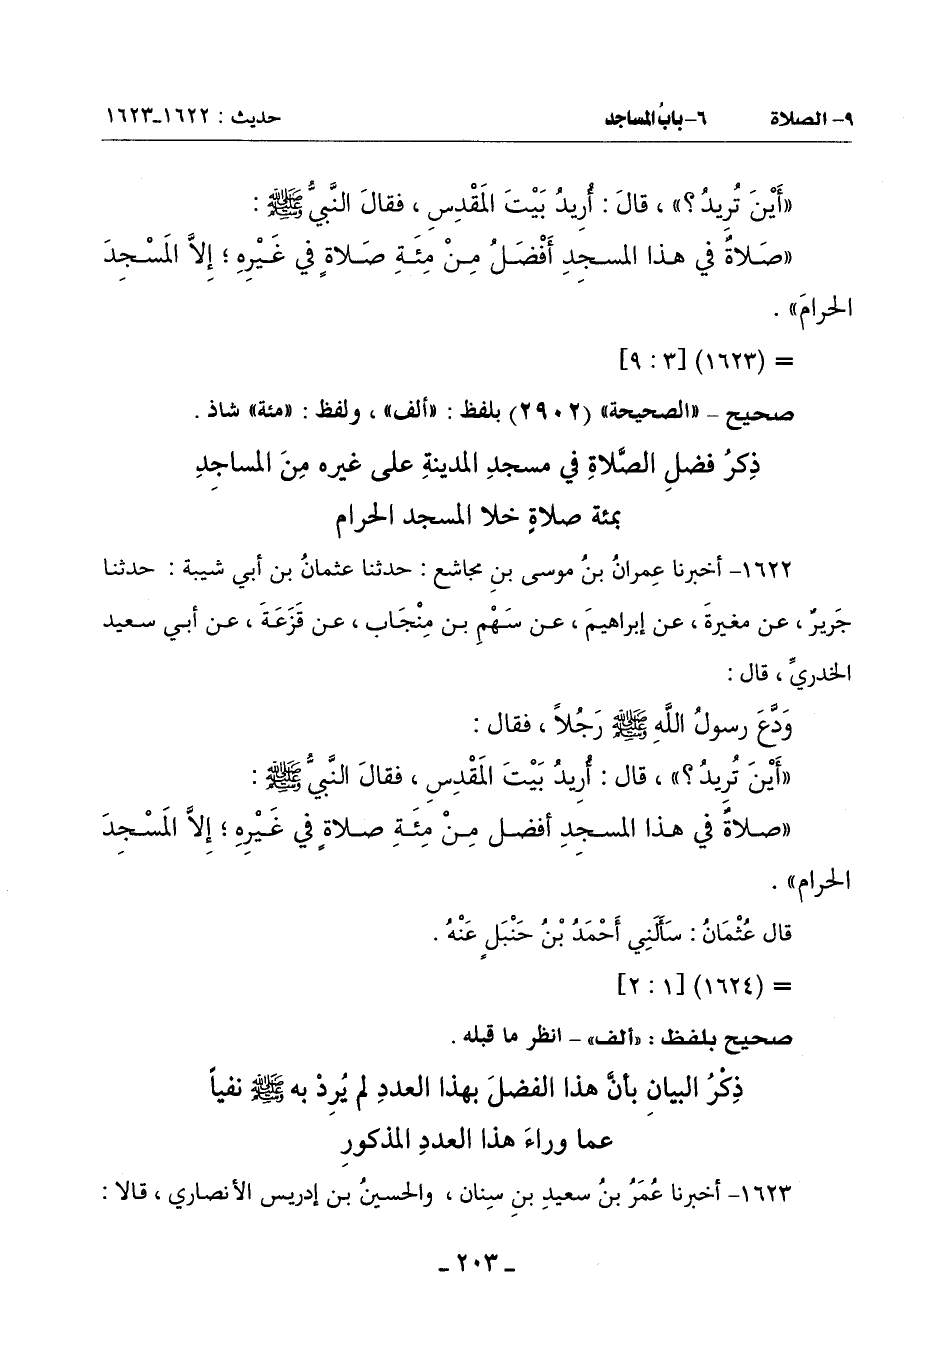 ٩- الصلاة ٦- بابُ المساجد حديث : ١٦٢٢-١٦٢٣
«أَيْنَ تُرِيدُ ؟» ، قالَ : أُرِيدُ بَيْتَ المَقْدِسِ ، فقالَ النَّبيُّ ﷺ :
«صَلاةٌ في هذا المسجدِ أَفْضَلُ مِنْ مِئَةِ صَلاةٍ في غَيْرِهِ ؛ إلاَّ المَسْجِدَ
الحرامَ» .
= (١٦٢٣) [٣ : ٩]
صحيح – «الصحيحة» (٢٩٠٢) بلفظ : «ألف» ، ولفظ : «مئة» شاذ .
ذِكرُ فضلِ الصَّلاةِ في مسجدِ المدينةِ على غيره مِنَ المساجدِ
بمئة صلاةٍ خلا المسجد الحرام
١٦٢٢- أخبرنا عِمرانُ بنُ موسى بنِ مجاشع : حدثنا عثمانُ بن أبي شيبة : حدثنا
جَريرٌ ، عن مغيرةَ ، عن إبراهيمَ ، عن سَهْمِ بن مِنْجَاب ، عن قَزَعَةَ ، عن أبي سعيد
الخدريِّ ، قال :
وَدَّعَ رسولُ اللَّهِ ﷺ رَجُلاً ، فقال :
«أَيْنَ تُرِيدُ ؟» ، قال : أُرِيدُ بَيْتَ المَقْدِسِ ، فقالَ النَّبيُّ ﷺ :
«صلاةٌ في هذا المسجدِ أفضل مِنْ مِئَةِ صلاةٍ في غَيْرِهِ ؛ إلاَّ المَسْجِدَ
الحرام» .
قال عُثْمَانُ : سَأَلَنِي أَحْمَدُ بْنُ حَنْبَلٍ عَنْهُ .
= (١٦٢٤) [١ : ٢]
صحيح بلفظ : «ألف» – انظر ما قبله .
ذِكْرُ البيانِ بأنَّ هذا الفضلَ بهذا العددِ لم يُرِدْ به ﷺ نفياً
عما وراءَ هذا العددِ المذكورِ
١٦٢٣- أخبرنا عُمَرُ بنُ سعيدِ بنِ سِنان ، والحسينُ بن إدريس الأنصاري ، قالا :
- ٢٠٣ -